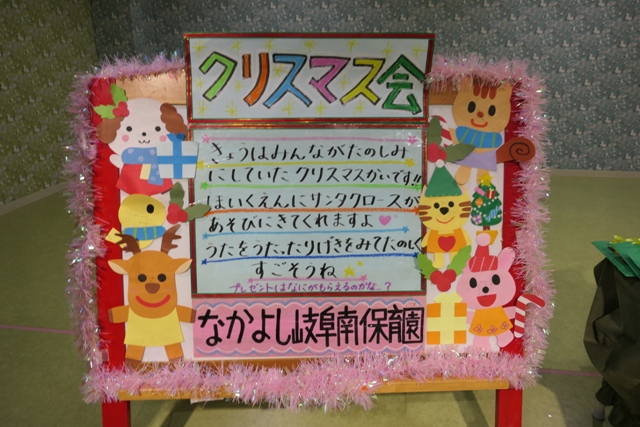 クリスマス会
きょうはみんながたのしみ
にしていたクリスマスかいです!!
ほいくえんにサンタクロースが
あそびにきてくれますよ
うたをうたったりげきをみてたのしく
すごそうね
プレゼントはなにがもらえるのかな..?
なかよし岐阜南保育園